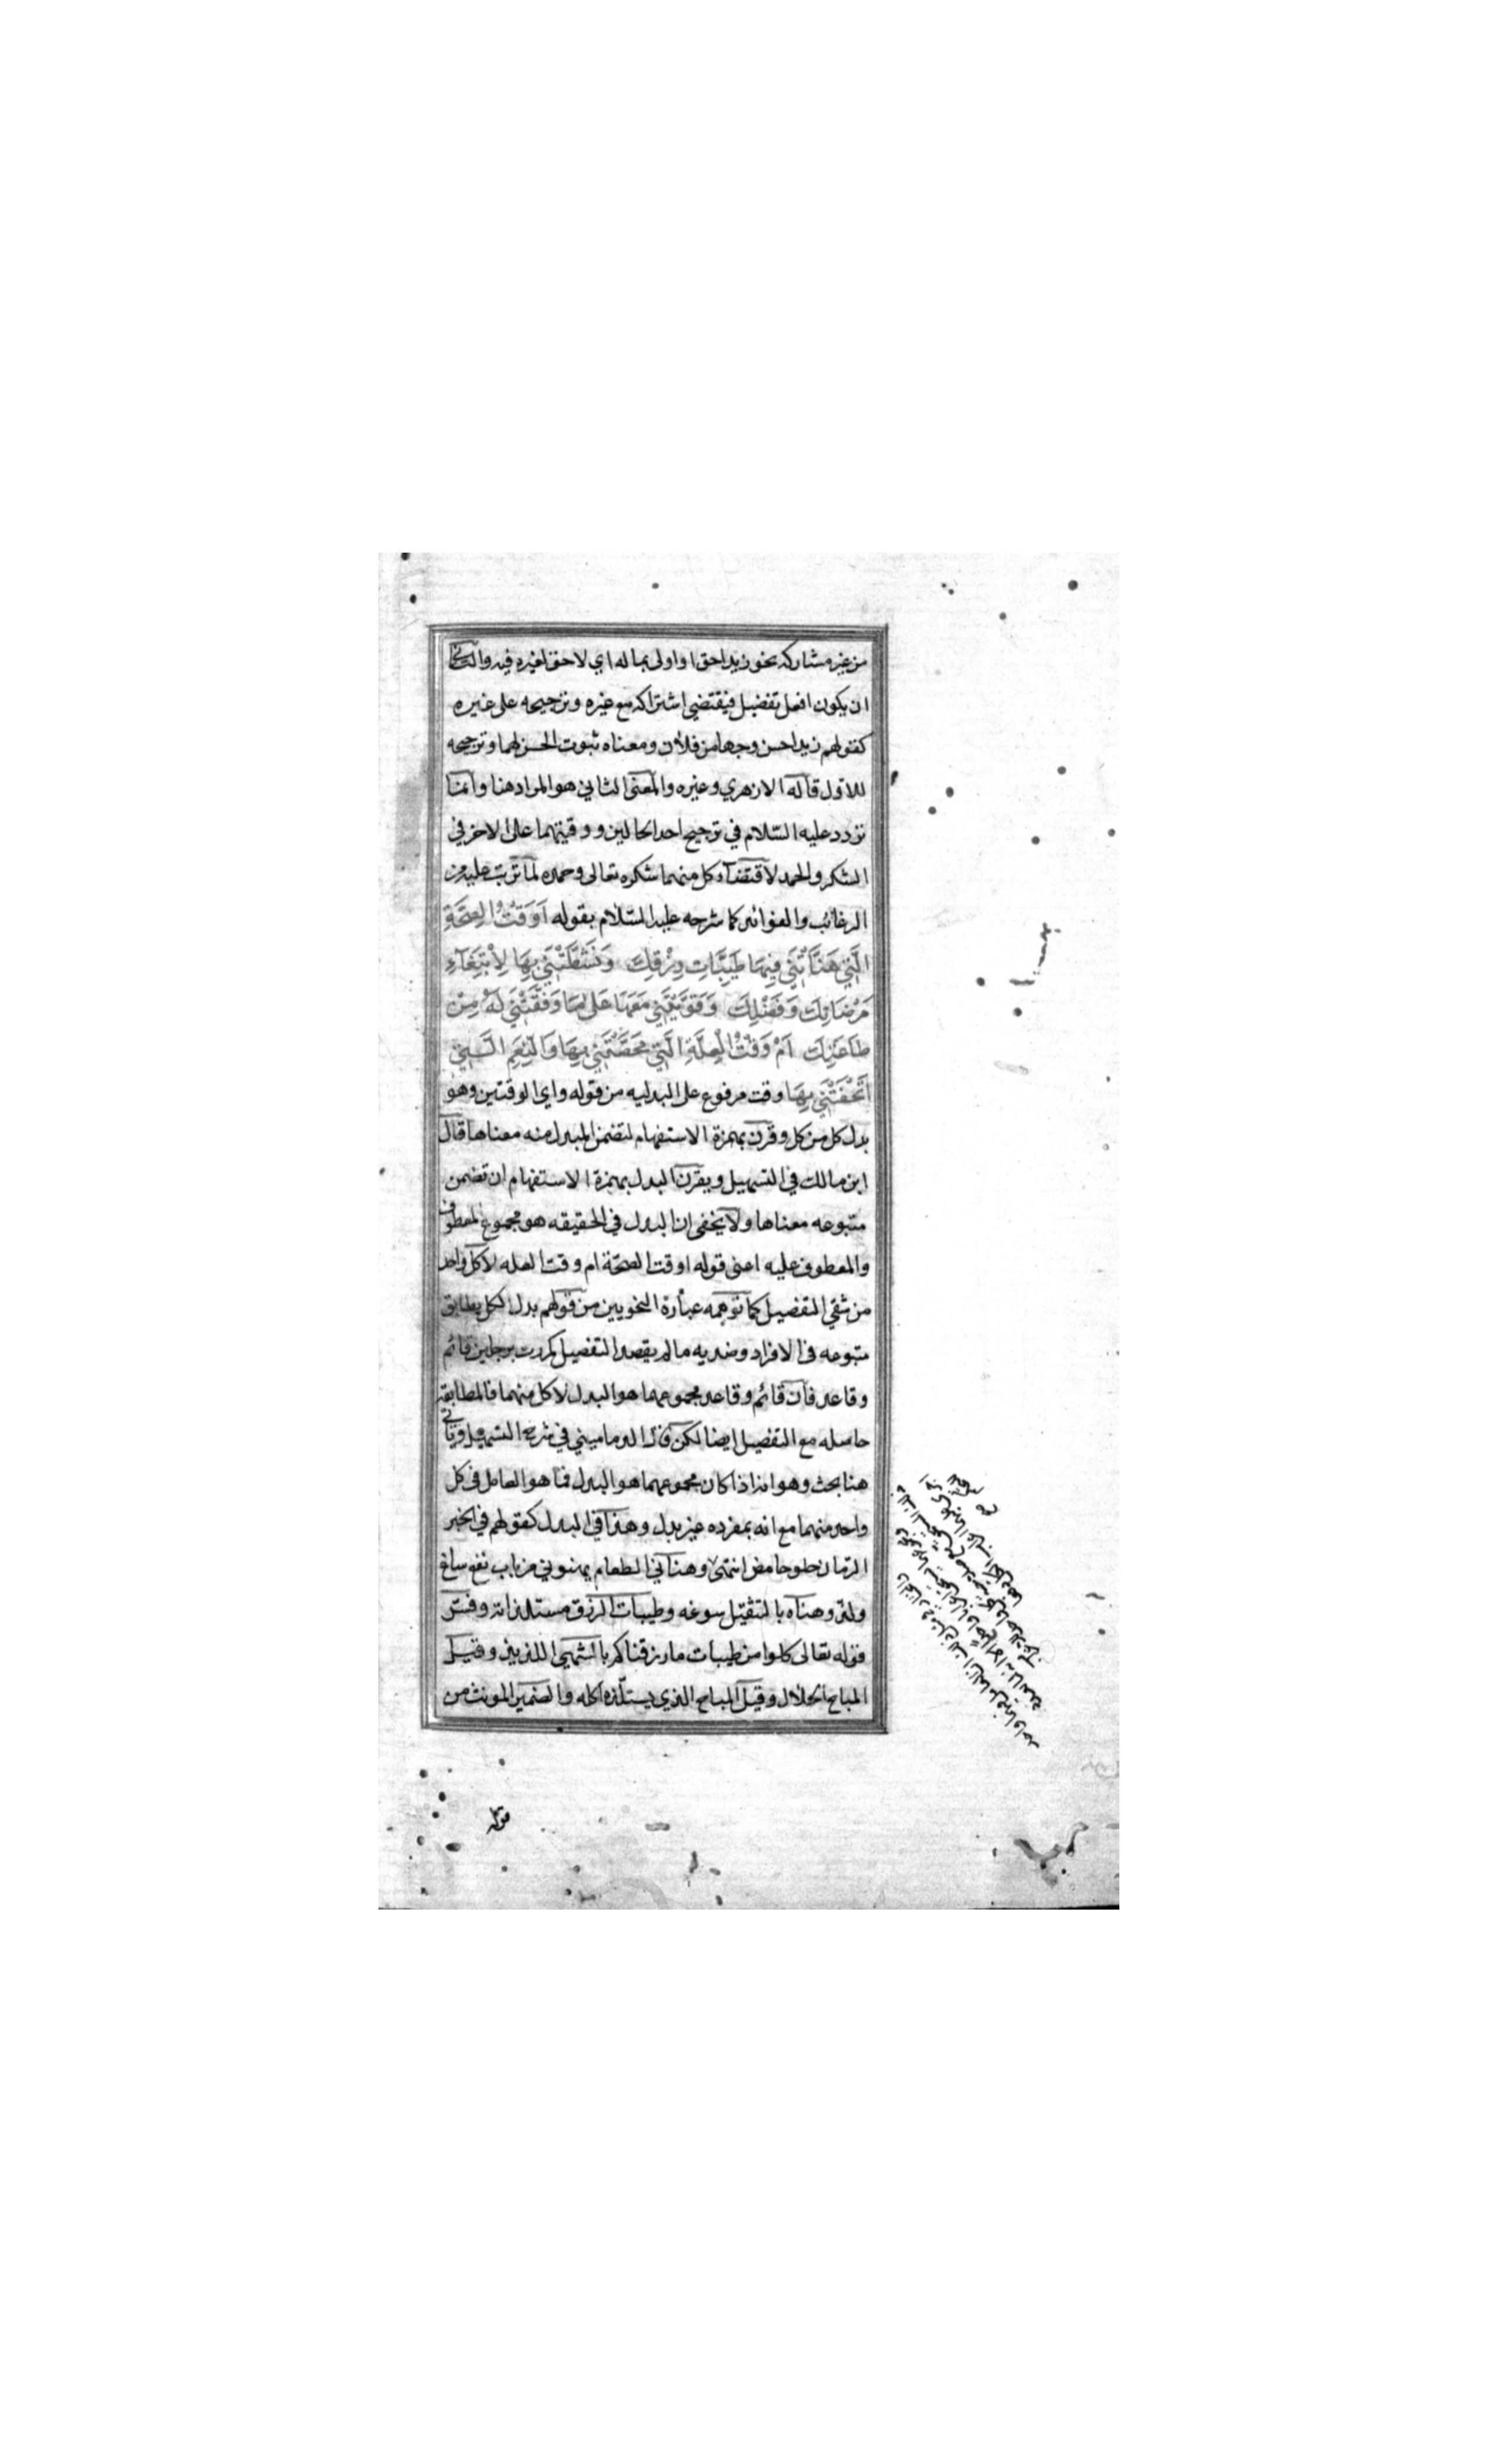 من غير مشاركه نحو زيد احق واولى بماله اي لا حق لغيره فيه والثاني
ان يكون افعل تفضيل فيقتضي اشتراكه مع غيره وترجيحه على غيره
كقولهم زيد احسن وجها من فلان ومعناه ثبوت الحسن لهما وترجيحه
للاول قاله الازهري وغيره والمعنى الثاني هو المراد هنا وانما
تردد عليه السّلام في ترجيح احد الحالين ووقتيهما على الاخر في
الشكر والحمد لاقتضاء كل منهما شكره تعالى وحمده لما ترتب عليه من
الرغائب والفوائد كما شرحه عليه السّلام بقوله اَوَقْتُ الصِّحَّةِ
الَّتِي هَنَّأْتَنِي فِيهَا طَيِّبَاتِ رِزْقِكَ وَنَشَّطْتَنِي بِهَا لِابْتِغَاءِ
مَرْضَاتِكَ وَفَضْلِكَ وَقَوَّيْتَنِي مَعَهَا عَلىٰ مَا وَفَّقْتَنِي لَهُ مِنْ
طَاعَتِكَ اَمْ وَقْتُ الْعِلَّةِ الَّتِي مَحَّصْتَنِي بِهَا وَالنِّعَمِ الَّتِي
اَتْحَفْتَنِي بِهَا وقت مرفوع على البدليه من قوله واي الوقتين وهو
بدل كل من كل وقرن بهمزة الاستفهام لتضمن المبدل منه معناها قال
ابن مالك في التسهيل ويقرن البدل بهمزة الاستفهام ان تضمن
متبوعه معناها ولا يخفى ان البدل في الحقيقه هو مجموع المعطوف
والمعطوف عليه اعنى قوله اوقت الصحّة ام وقت العله لا كل واحد
من شقي التفضيل كما توهمه عبارة النحويين من قولهم بدل الكل يطابق
متبوعه في الافراد وضديه ما لم يقصد التفضيل كمررت برجلين قائم
وقاعد فان قائم وقاعد مجموعهما هو البدل لا كل منهما فالمطابقة
حاصله مع التفصيل ايضا لكن قال الدماميني في شرح التسهيل وياتي
هنا بحث وهو انه اذا كان مجموعهما هو البدل فما هو العامل في كل
واحد منهما مع انه بمفرده غير بدل وهذا في البدل كقولهم في الخبر
الرّمان حلو حامض انتهى وهناني الطعام يهنوني من باب نفع ساغ
ولذ وهناه بالتثقيل سوغه وطيبات الرزق مستلذاته وفسّر
قوله تعالى كلوا من طيبات ما رزقناكم بالشهي اللذيذ وقيل
المباح الحلال وقيل المباح الذي يستلذه آكله والضمير المونث من
قوله